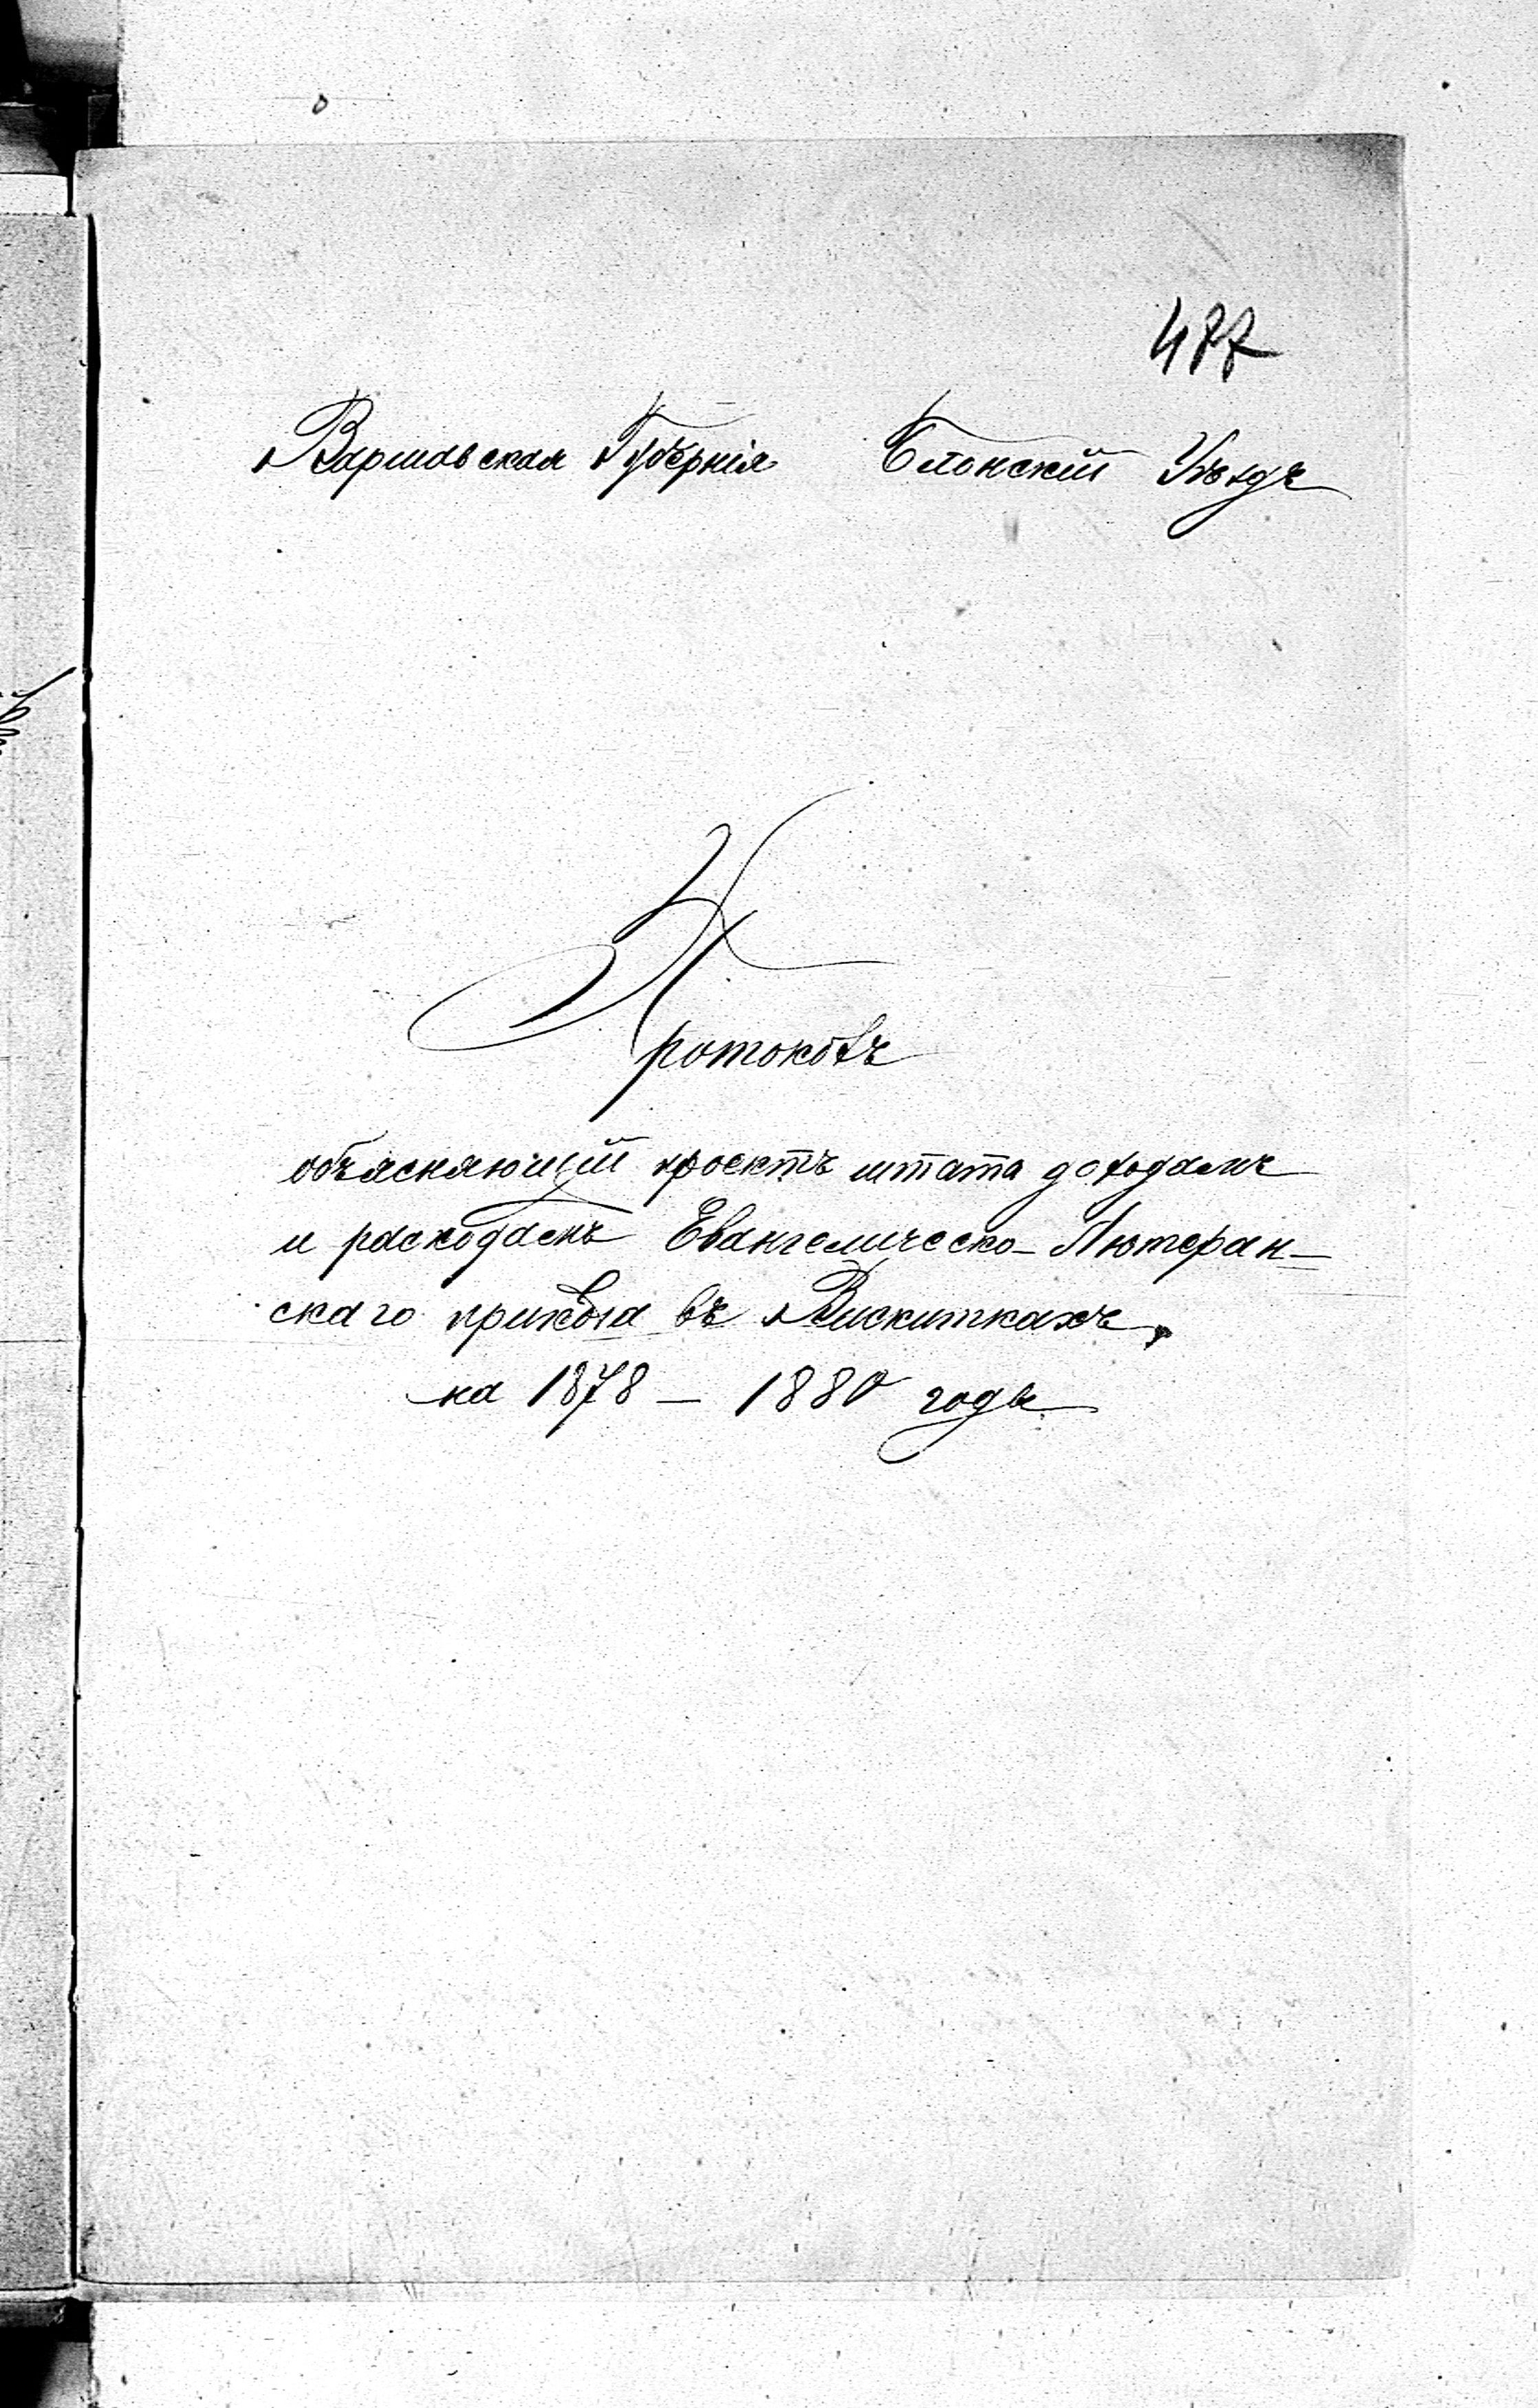 487
Варшавская Губернія Блонскій Уѣздъ
Протоколъ
объясняющій проектъ штата доходамъ
и расходамъ Евангелическо-Лютеран-
скаго прихода въ Вискиткахъ,
на 1878 – 1880 годы